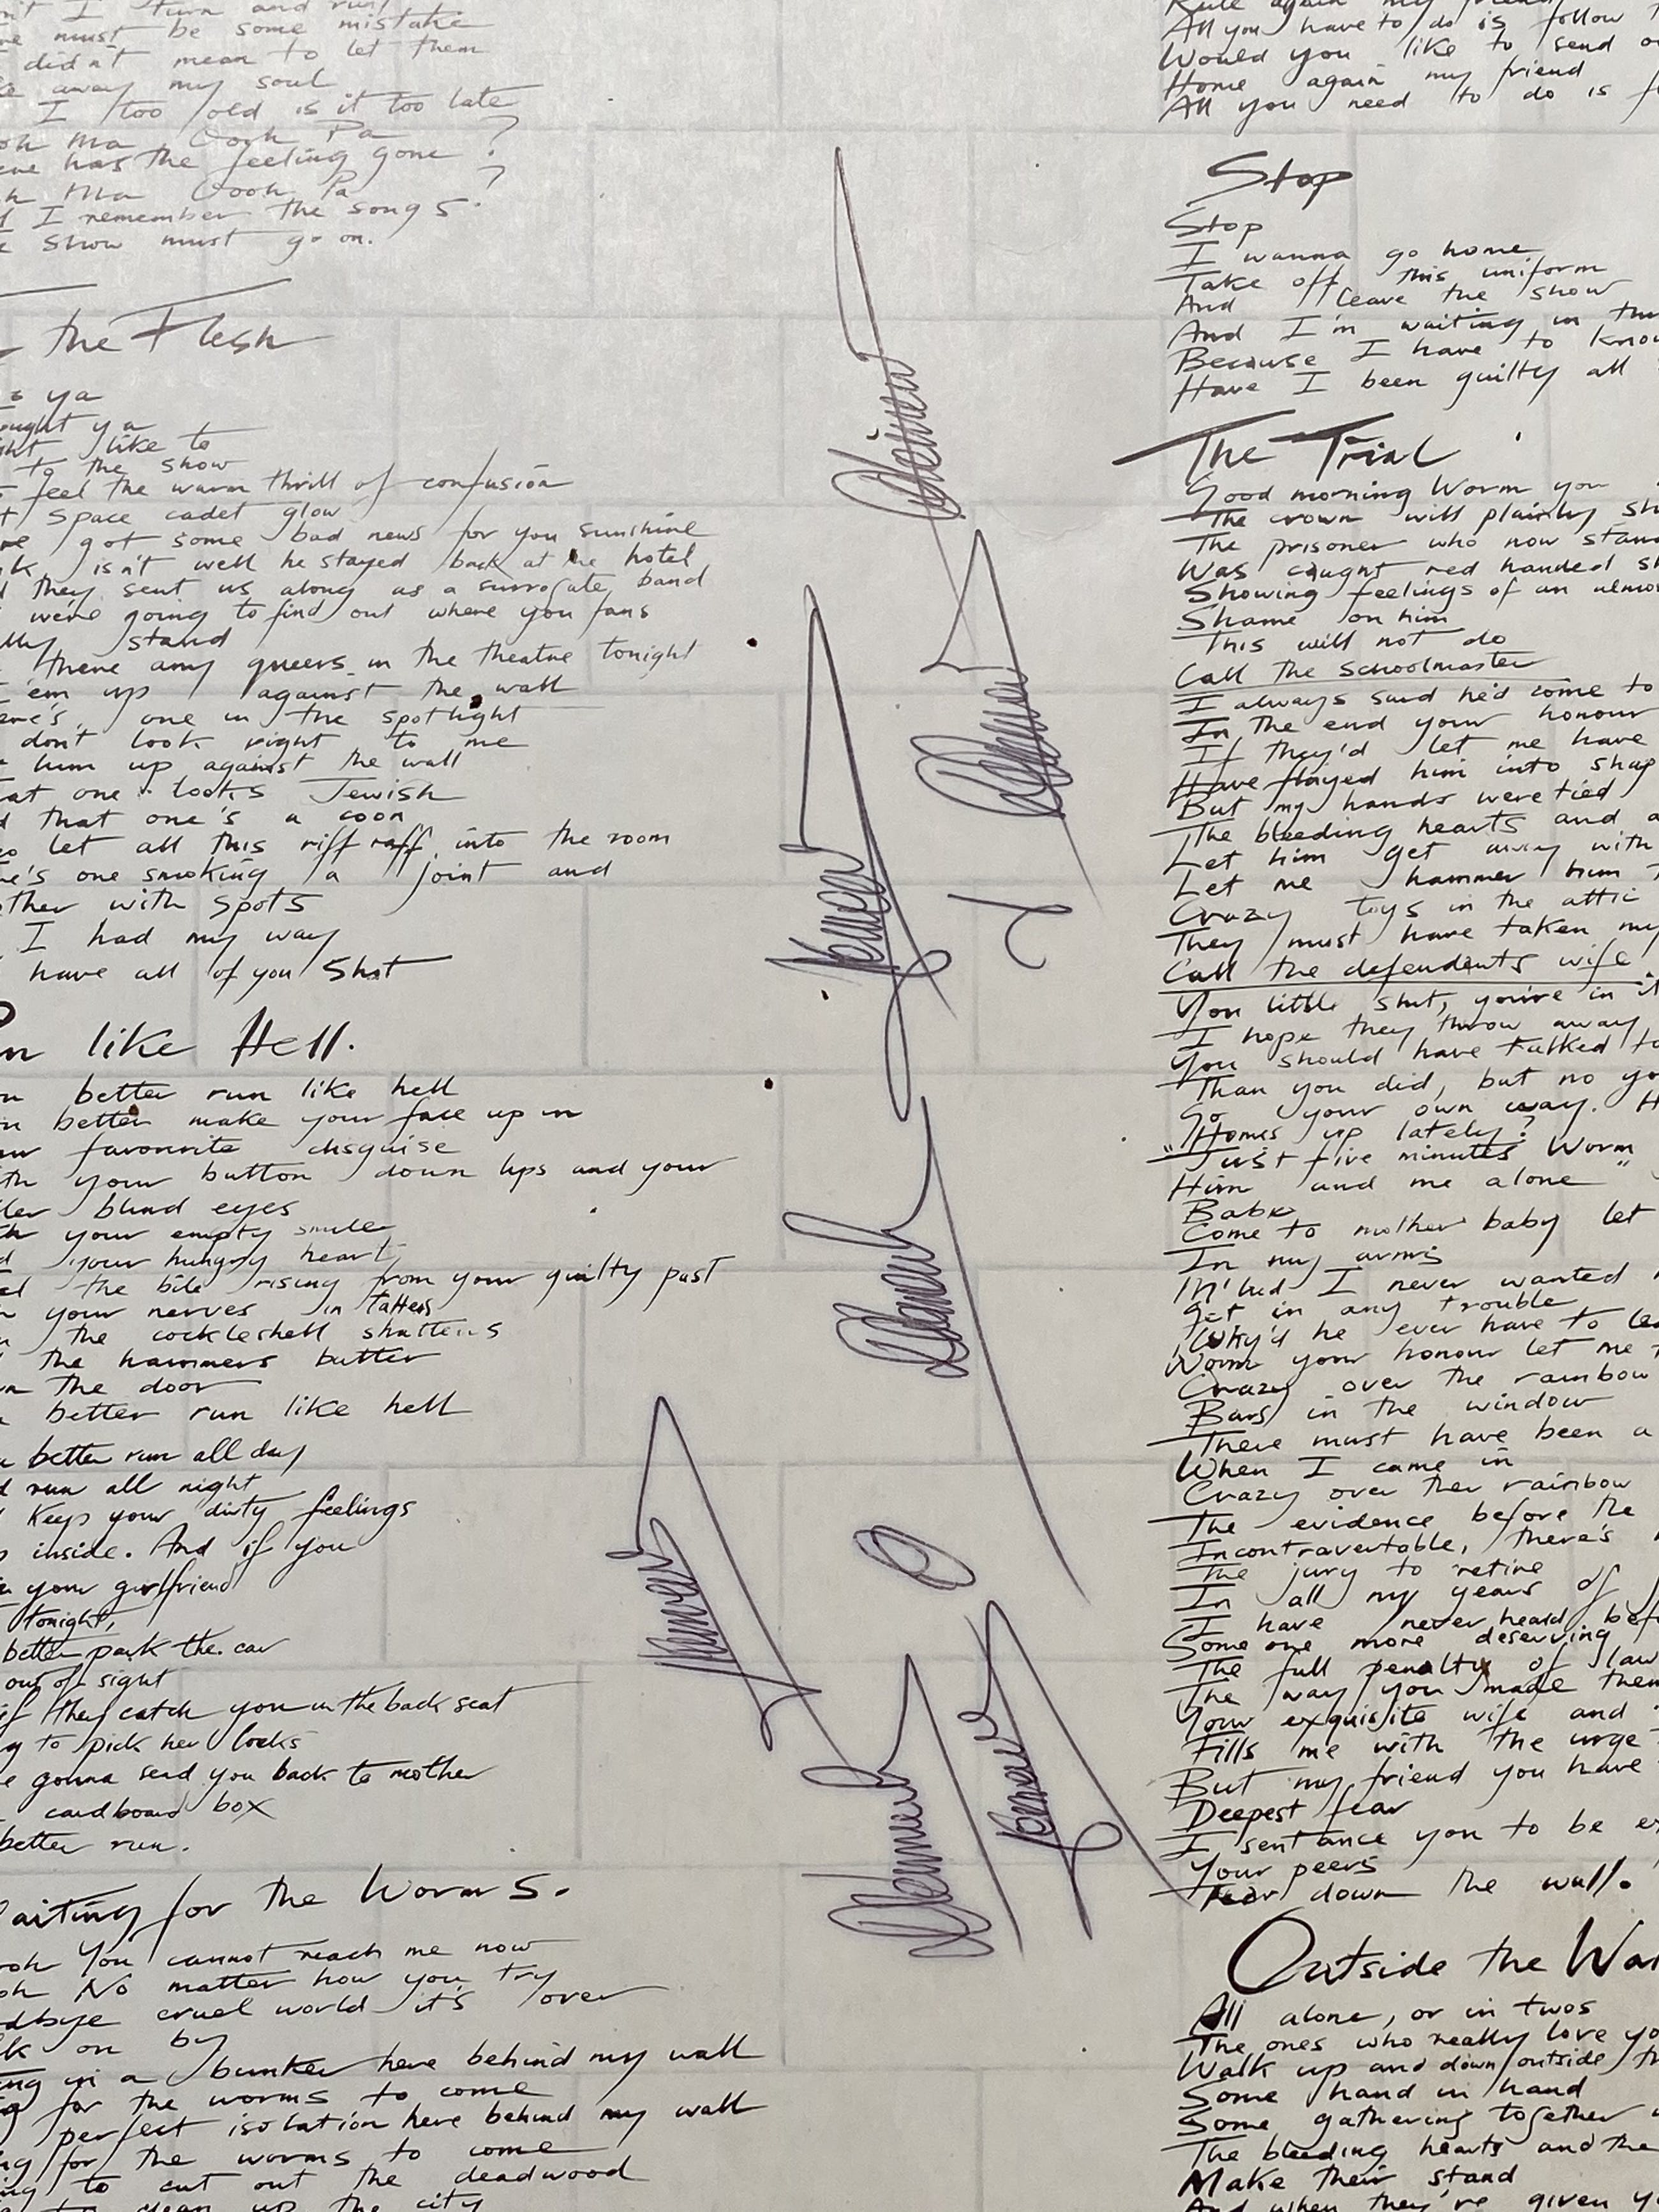 I turn and run
must be some mistake
didn't mean to let them
away my soul
I too old is it too late
Ma Oooh Pa
has the feeling gone ?
Ma Oooh Pa ?
I remember the songs
show must go on.
the Flesh
ya
ya
like to
to the show
feel the warm thrill of confusion
space cadet glow
got some bad news for you sunshine
isn't well he stayed back at the hotel
they sent us along as a surrogate band
we're going to find out where you fans
stand
there any queers in the theatre tonight
'em up against the wall
one in the spotlight
don't look right to me
him up against the wall
one looks Jewish
that one's a coon
let all this riff raff into the room
one smoking a joint and
with spots
I had my way
have all of you Shot
like Hell.
better run like hell
better make your face up in
favourite disguise
your button down lips and your
blind eyes
your empty smile
your hungry heart
the bile rising from your guilty past
your nerves in tatters
the cockleshell shatters
the hammers batter
the door
better run like hell
better run all day
run all night
Keep your dirty feelings
inside. And if you
your girlfriend
tonight,
better park the car
out of sight
if they catch you in the back seat
to pick her locks
gonna send you back to mother
cardboard box
better run.
for the Worms.
You cannot reach me now
No matter how you try
cruel world it's over
on by
in a bunker here behind my wall
for the worms to come
perfect isolation here behind my wall
for the worms to come
to cut out the deadwood
clean up the city
again my friend
All you have to do is follow
Would you like to send
Home again my friend
All you need to do is
Stop
Stop
I wanna go home
Take off this uniform
And leave the show
And I'm waiting in
Because I have to know
Have I been guilty all
The Trial
Good morning Worm you
The crown will plainly
The prisoner who now
Was caught red handed
Showing feelings of an
Shame on him
This will not do
Call the schoolmaster
I always said he'd come to
In the end your honour
If they'd let me have
Have flayed him into
But my hands were tied
The bleeding hearts and
Let him get away with
Let me hammer him
Crazy toys in the attic
They must have taken my
Call the defendants wife
You little shit, you're in
I hope they throw away
You should have talked
Than you did, but no
Go your own way.
"Homes up lately?
Just five minutes Worm
Him and me alone"
Babe
Come to mother baby let
In my arms
M'lud I never wanted
get in any trouble
Why'd he ever have to
Worm your honour let me
Crazy over the rainbow
Bars in the window
There must have been a
When I came in
Crazy over the rainbow
The evidence before the
Incontravertable, there's
The jury to retire
In all my years of
I have never heard
Someone more deserving
The full penalty of law
The way you made them
Your exquisite wife and
Fills me with the urge
But my friend you have
Deepest fear
I sentance you to be
Your peers
Tear down the wall.
Outside the
All alone, or in twos
The ones who really love
Walk up and down outside
Some hand in hand
Some gathering together
The bleeding hearts and the
Make their stand
And when they've given